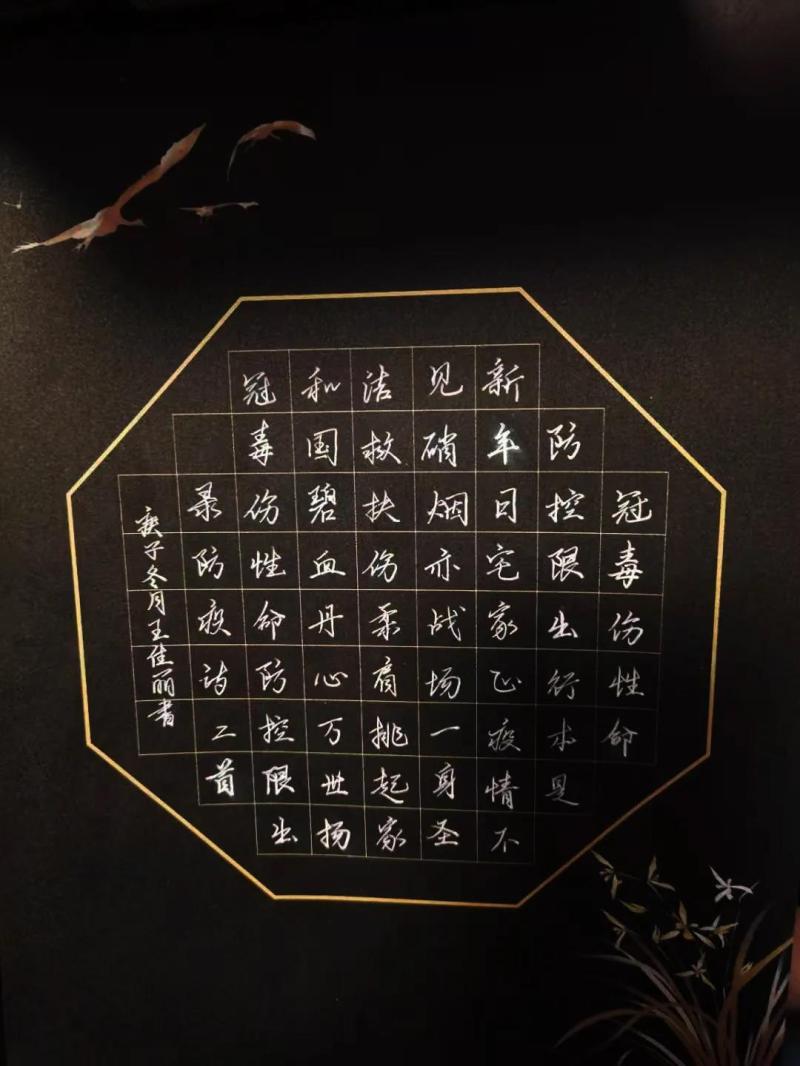 冠毒伤性命
防控限出行本是
新年日宅家正疫情不
见硝烟亦战场一身圣
洁救扶伤柔肩挑起家
和国碧血丹心万世扬
冠毒伤性命防控限出
录防疫诗二首
庚子冬月王佳丽书